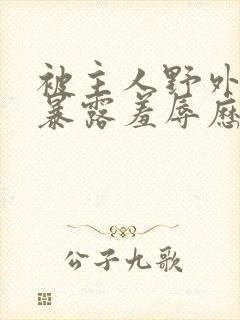 被主人野外
暴露羞辱历
公子九歌